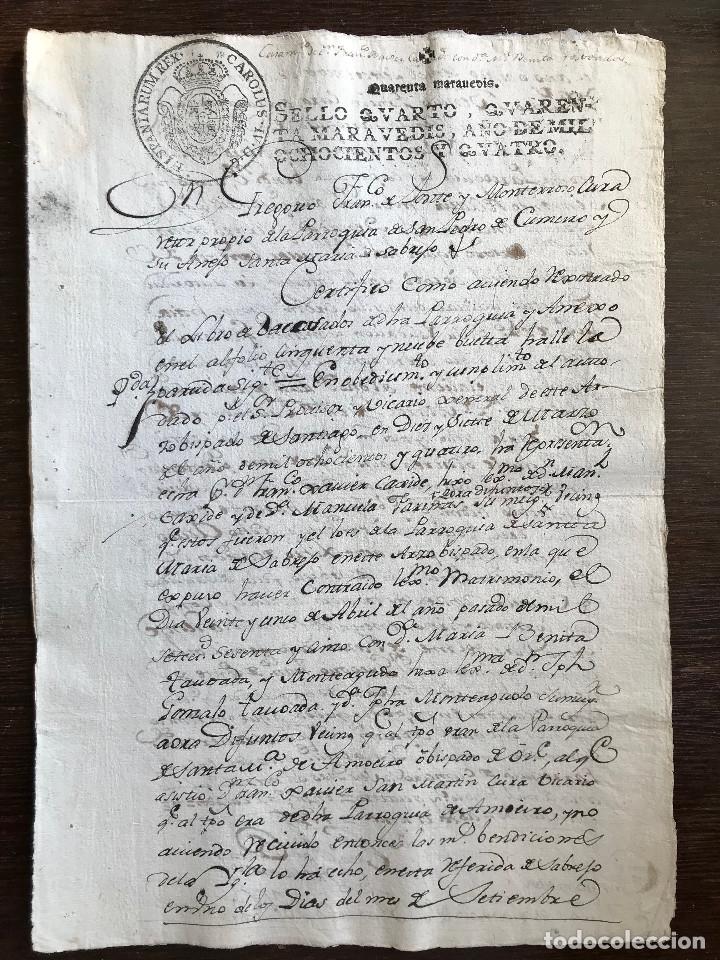 HISPANIARUM REX CAROLUS IV D G
Quarenta marauedis.
SELLO QVARTO, QVAREN-
TA MARAVEDIS, AÑO DE MIL
OCHOCIENTOS Y QVATRO.
Dn Gregorio Franco. de Puente y Monterroso Cura
retor propio de la Parroquia de San Pedro de Cumeiro y
su Anejo Santa Maria de Sabrejo
Certifico Como aviendo rexistrado
el Libro de Cassados de dha Parroquia y Annexo
en el al folio cinquenta y nuebe buelta halle la
Pda partida sigte = En obedicimto. y cumplimto del auto
dado pr. el Sr. Provisor y Vicario xeneral de este Ar
zobispado de Santiago en Diez y Siete de Marzo
de año de mil ochocientos y quatro, ha representa
cion de Dn. Franco. Xavier Caride hixo lexmo. de Dn. Manl.
Caride y de Da. Manuela Fariñas su muger aora difuntos Vecins.
qe. estos fueron y el lo es de la Parroquia de Santa
Maria de Sabrejo en este Arzobispado, en la que
expuso haver Contraido lexmo. Matrimonio, el
Dia Veinte y cinco de Abril del año pasado de mil
setecs. Sesenta y cinco con Da. Maria Benita
Tavoada y Monteagudo hixa lexma. de Dn. Jph
Gonzalo Tavoada, y Da. Jpha Monteagudo su muger
aora Difuntos Vecins. qe. al tpo eran de la Parroquia
de Santa Ma. de Amoeiro obispado de Ore., al qe.
asistio Dn. Franco. Xavier San Martin Cura Vicario
qe. al tpo era de dha Parroquia de Amoeiro, y no
aviendo recivido entonces las ms. bendiciones
de la Ygla. lo ha echo, en esta referida de Sabrejo
en uno de los Dias del mes de Setiembre
todocoleccion.net